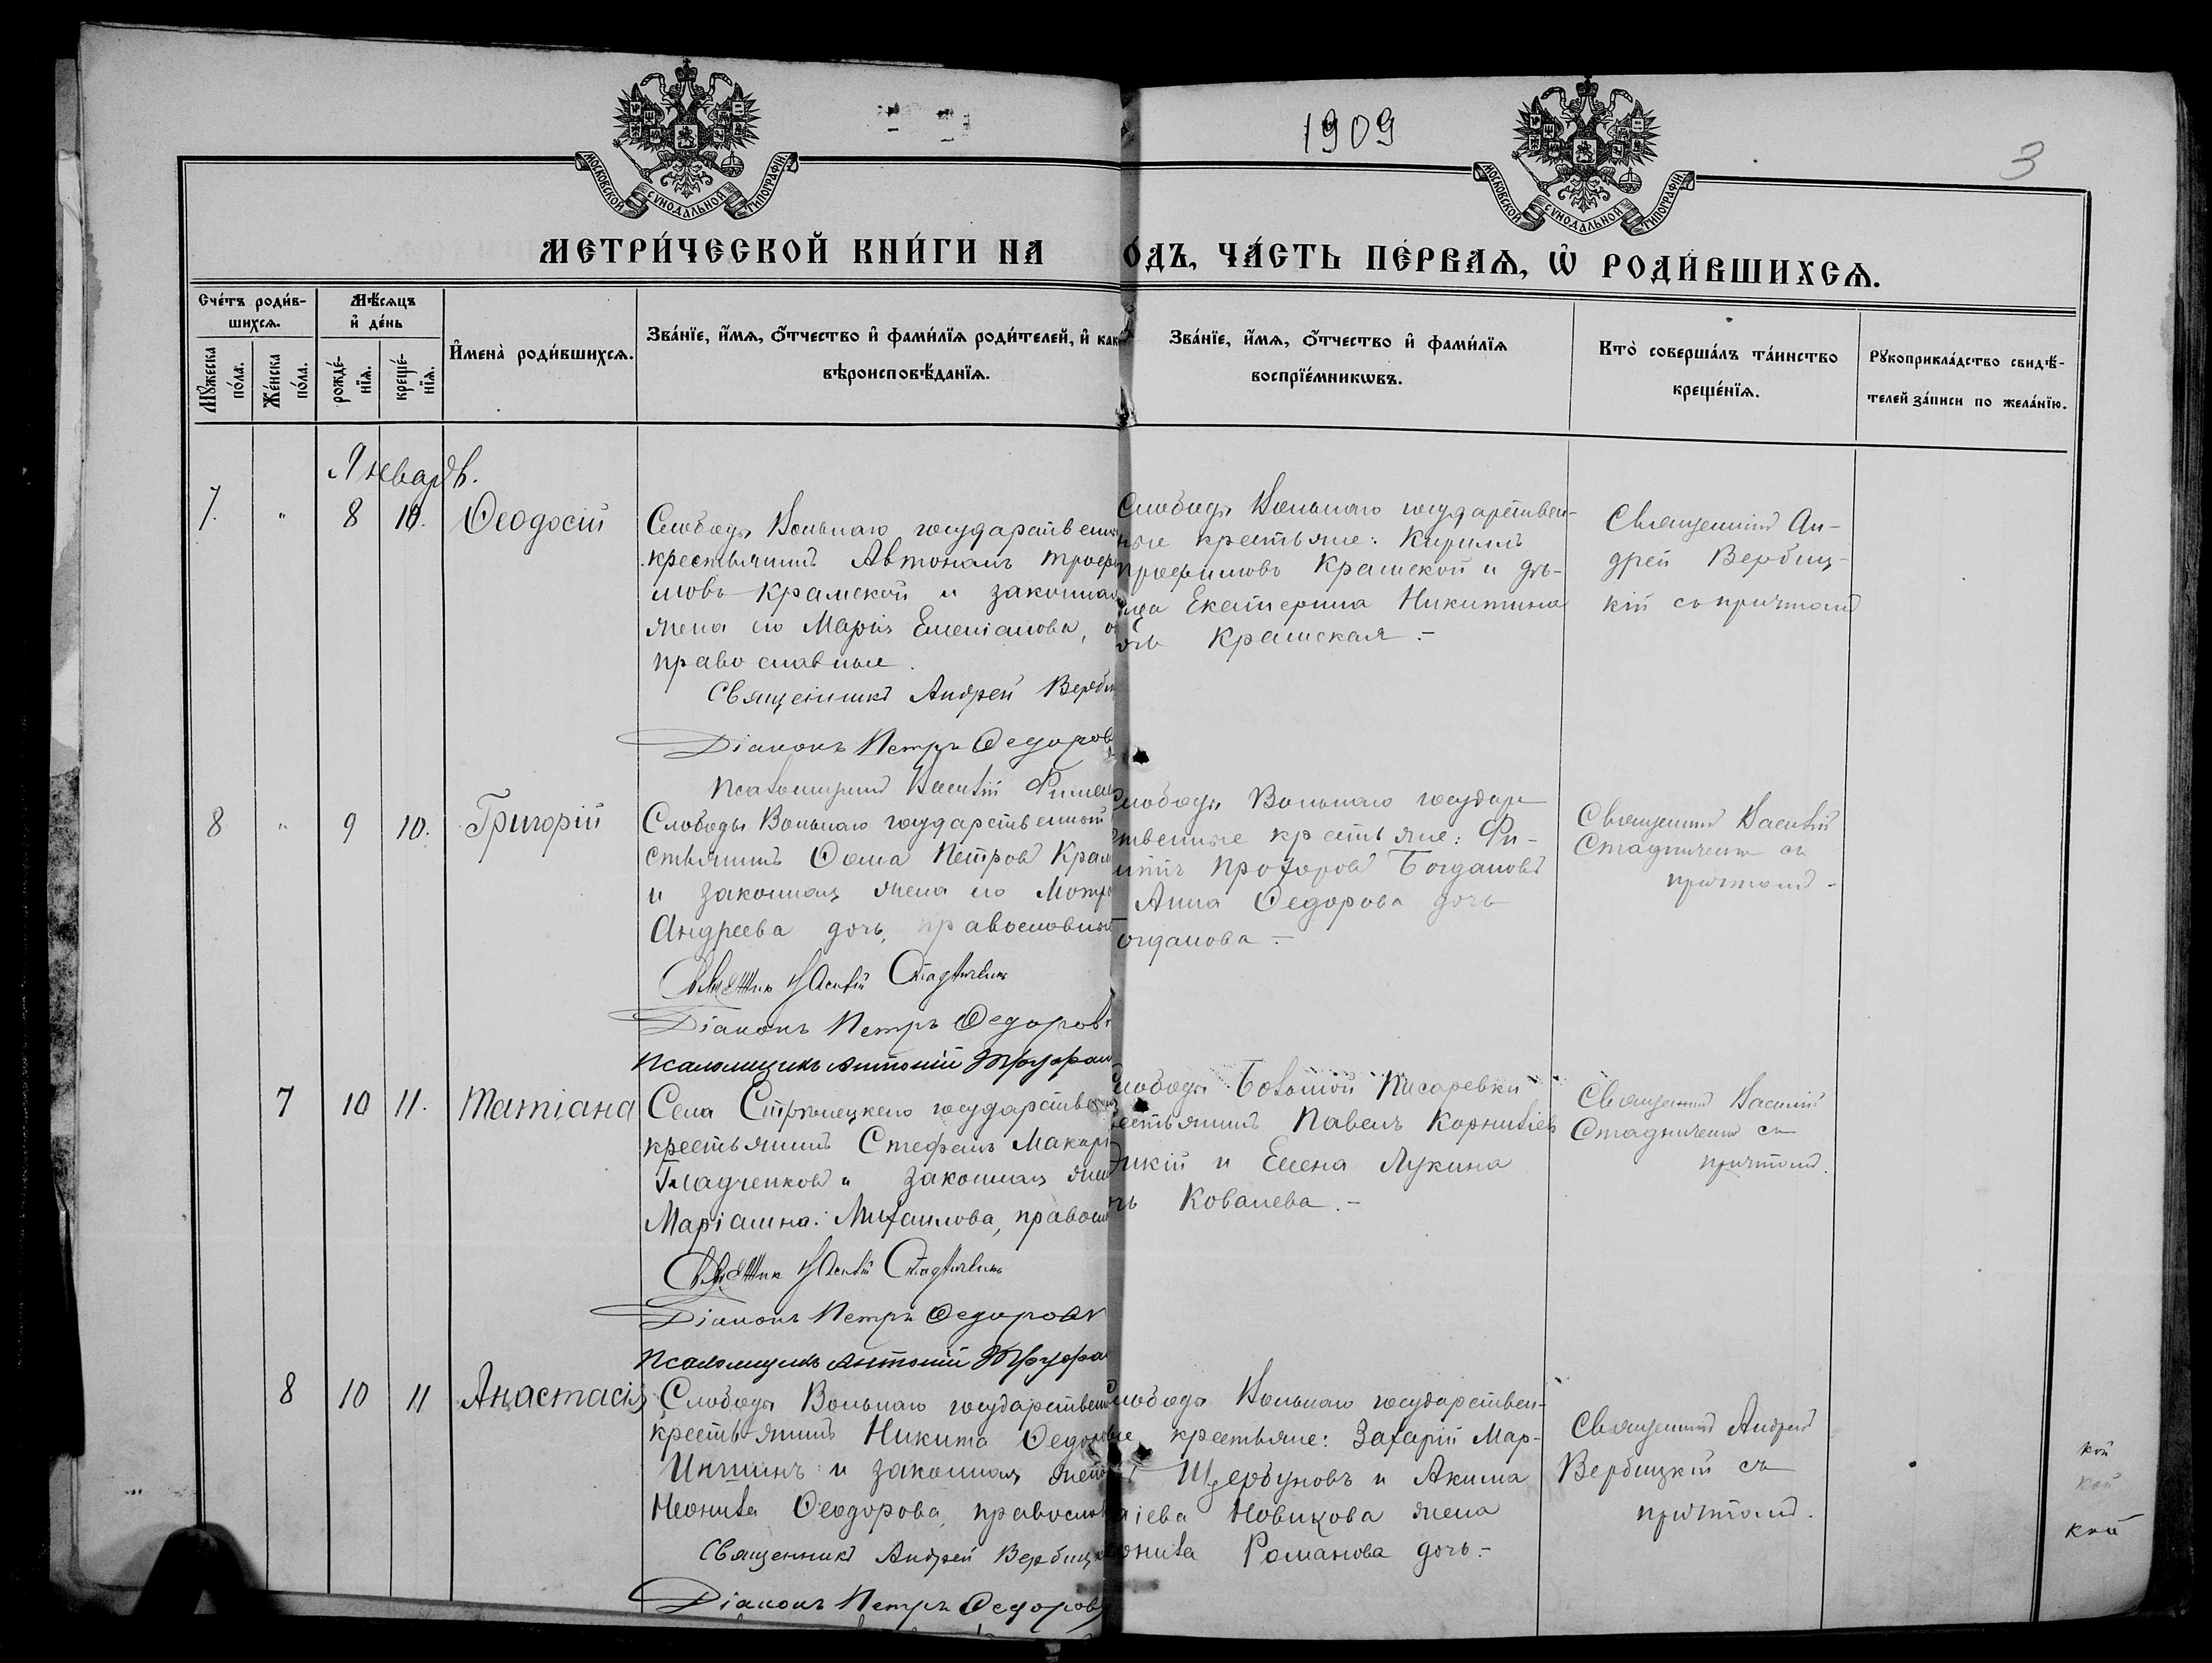 1909
3
МОСКОВСКОЙ СѴНОДАЛЬНОЙ ТИПОГРАФІИ
МОСКОВСКОЙ СѴНОДАЛЬНОЙ ТИПОГРАФІИ
МЕТРИ́ЧЕСКОЙ КНИ́ГИ НА
ОДЪ, ЧА́СТЬ ПЕ́РВАѦ, Ѡ҆ РОДИ́ВШИХСѦ.
Сче́тъ роди́в-
шихсѧ.
Мѣ́сѧцъ
и҆ де́нь
Мꙋжеска
по́ла.
Же́нска
по́ла.
рожде́-
нїѧ.
креще́-
нїѧ.
И҆мена̀ роди́вшихсѧ.
Зва́нїе, и҆́мѧ, ѻ҆́тчество и҆ фами́лїѧ роди́телей, и҆ как
вѣроисповѣ́данїѧ.
Зва́нїе, и҆́мѧ, ѻ҆́тчество и҆ фами́лїѧ
воспрїе́мникѡвъ.
Кто̀ соверша́лъ та́инство
креще́нїѧ.
Рꙋкоприкла́дство свидѣ́-
телей за́писи по жела́нїю.
Январь.
7. " 8 10. Ѳеодосій
Слободы Вольнаго государствен
крестьянинъ Автономъ Троф
мовъ Крамской и законная
жена его Марія Емеліанова,
православные.
Священникъ Андрей Верби
Діаконъ Петръ Ѳедоров
Псаломщикъ Василій
Слободы Вольнаго государствен-
ные крестьяне: Кириллъ
Трофимовъ Крамской и дѣ-
вица Екатерина Никитина
очь Крамская.-
Священникъ Ан-
дрей Вербиц-
кій съ причтомъ
8 " 9 10. Григорій
Слободы Вольнаго государственной
стьянинъ Ѳома Петровъ Крам
и законная жена его Мотр
Андреева дочь, православные
Священник Василій Стадниченко
Діаконъ Петръ Ѳедоров
Псаломщикъ Антоній Труфан
лободы Вольнаго государ
ственные крестьяне: Фи-
иппъ Прохоровъ Богдановъ
Анна Ѳедорова дочь
огданова.-
Священникъ Василій
Стадниченко съ
причтомъ-
7 10 11. Татіана
Села Стрѣлецкаго государствен
крестьянинъ Стефанъ Макар
Гладченковъ и законная жен
Маріамна Михаилова, правосл
Священник Василій Стадниченко
Діаконъ Петръ Ѳедоров
Псаломщикъ Антоній Труфа
лободы Большой Писаревки
естьянинъ Павелъ Корниліев
Дикій и Елена Лукина
чь Ковалева.-
Священникъ Василій
Стадниченко съ
причтомъ.
8 10 11 Анастасія
Слободы Вольнаго государствен
крестьянинъ Никита Ѳедо
и законная жен
Неонила Ѳеодорова, правосл
Священникъ Андрей Вербицк
Діаконъ Петръ Ѳедоров
лободы Вольнаго государствен-
ые крестьяне: Захарій Мар-
Щербуновъ и Акима
іева Новикова жена
онила Романова дочь.-
Священникъ Андрей
Вербицкій съ
причтомъ.
кой
кой
кой